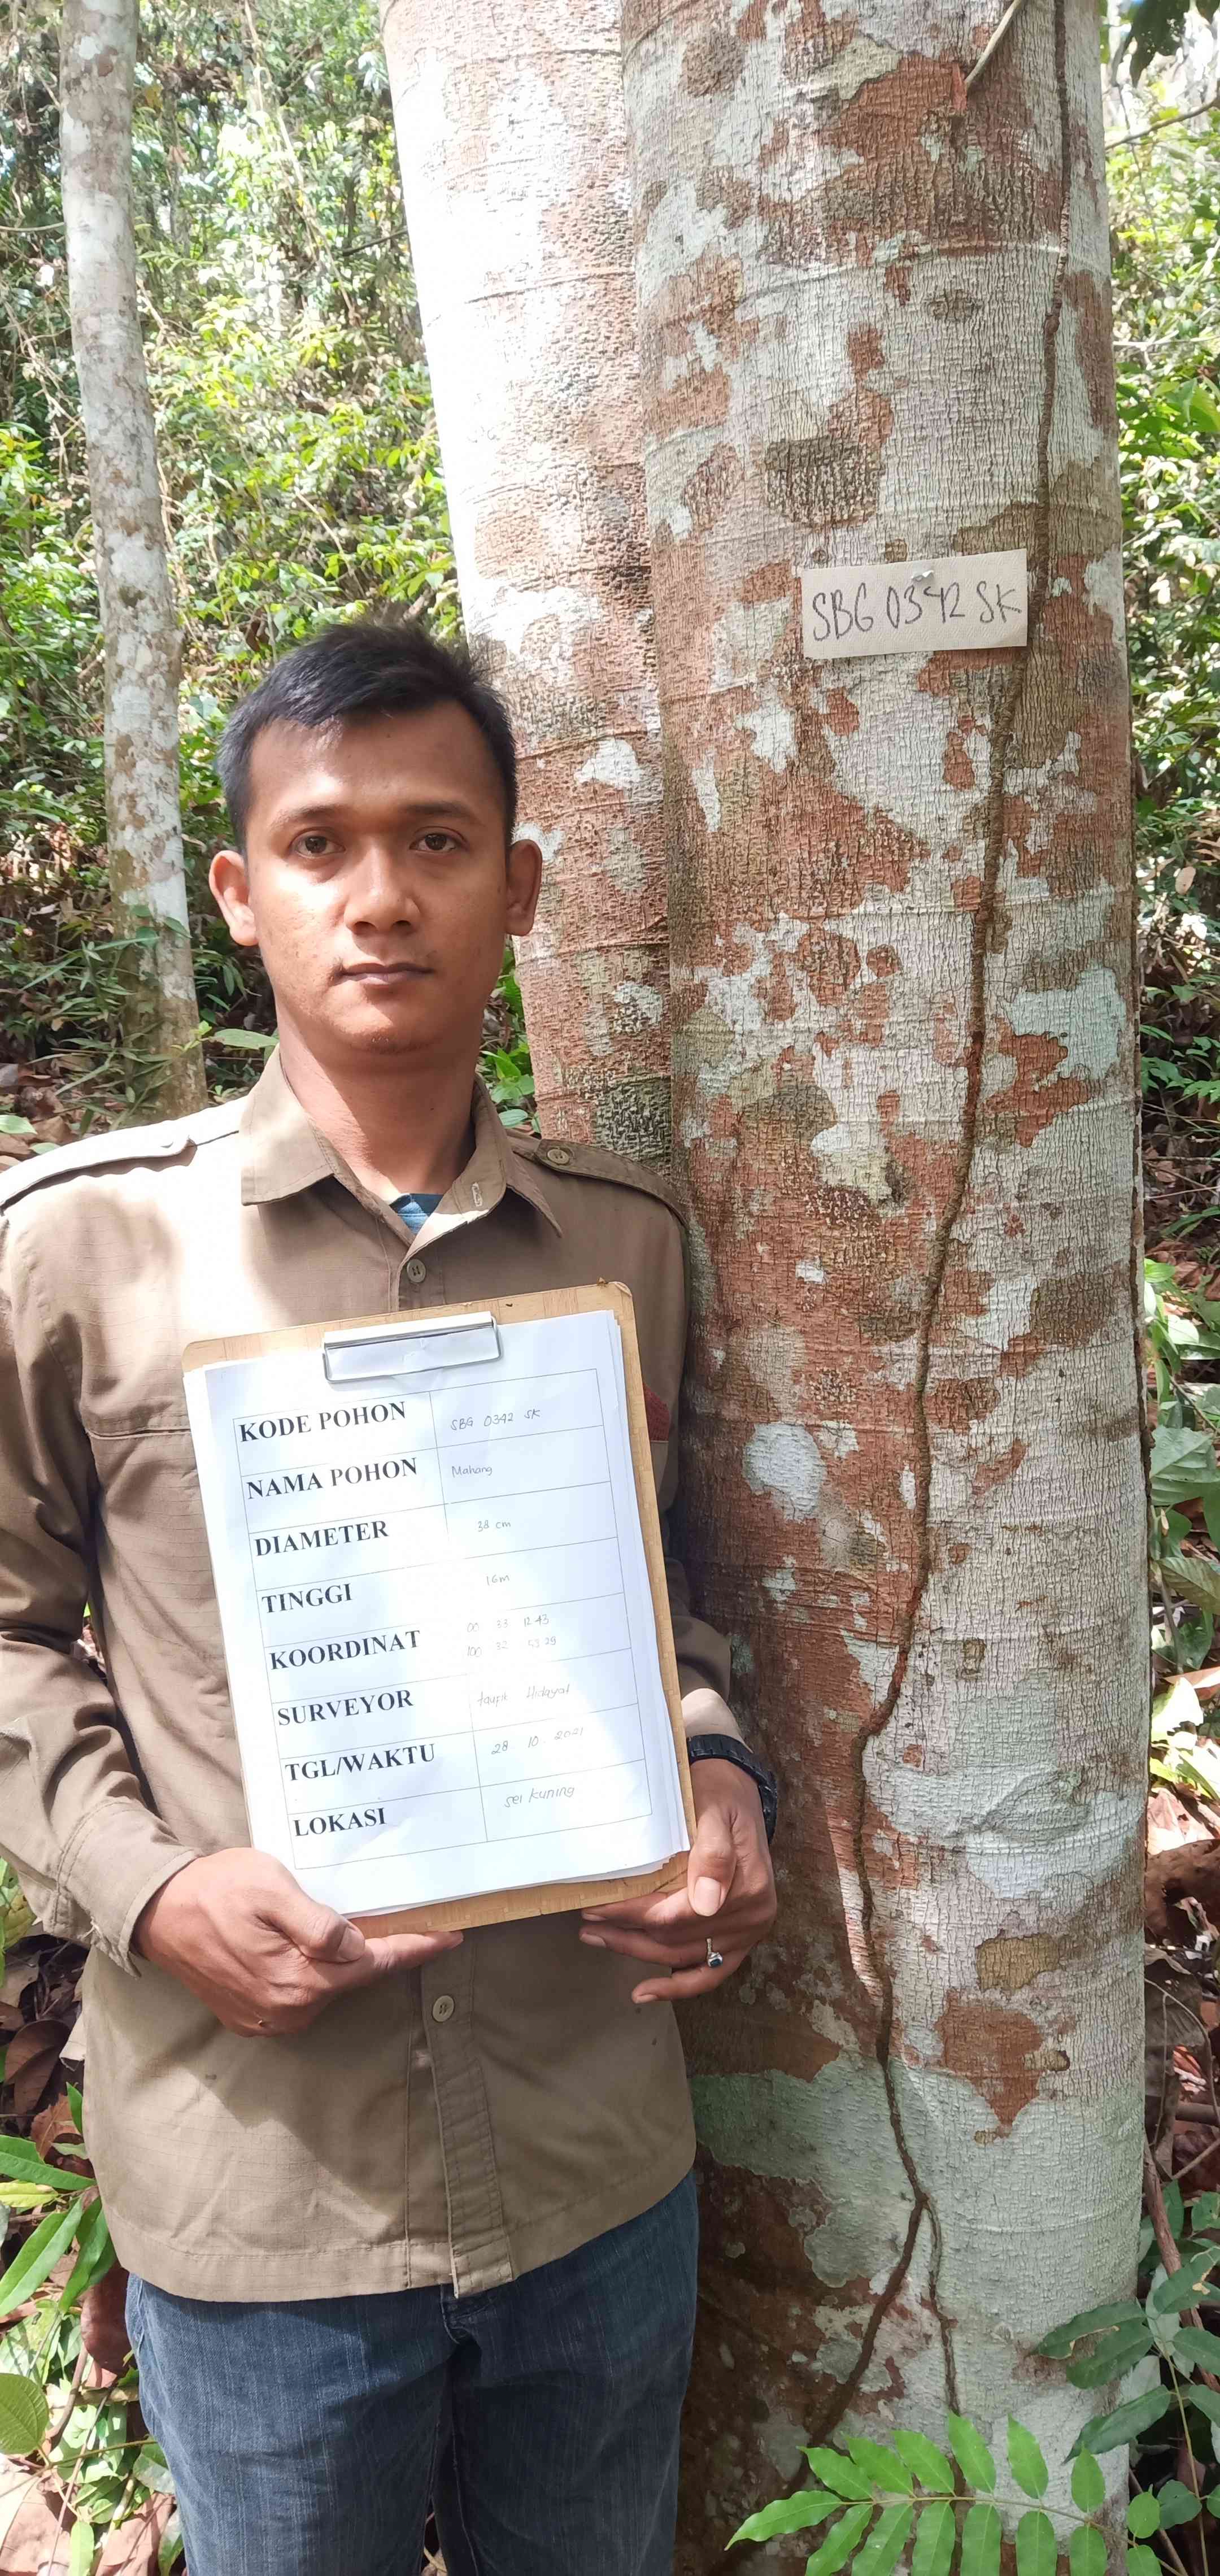 SBG 0342 SK
KODE POHON SBG 0342 SK
NAMA POHON Mahang
DIAMETER 38 cm
TINGGI 16m
KOORDINAT 00 33 12 43
100 32 53 29
SURVEYOR taupik Hidayat
TGL/WAKTU 28 10 2021
LOKASI sei kuning